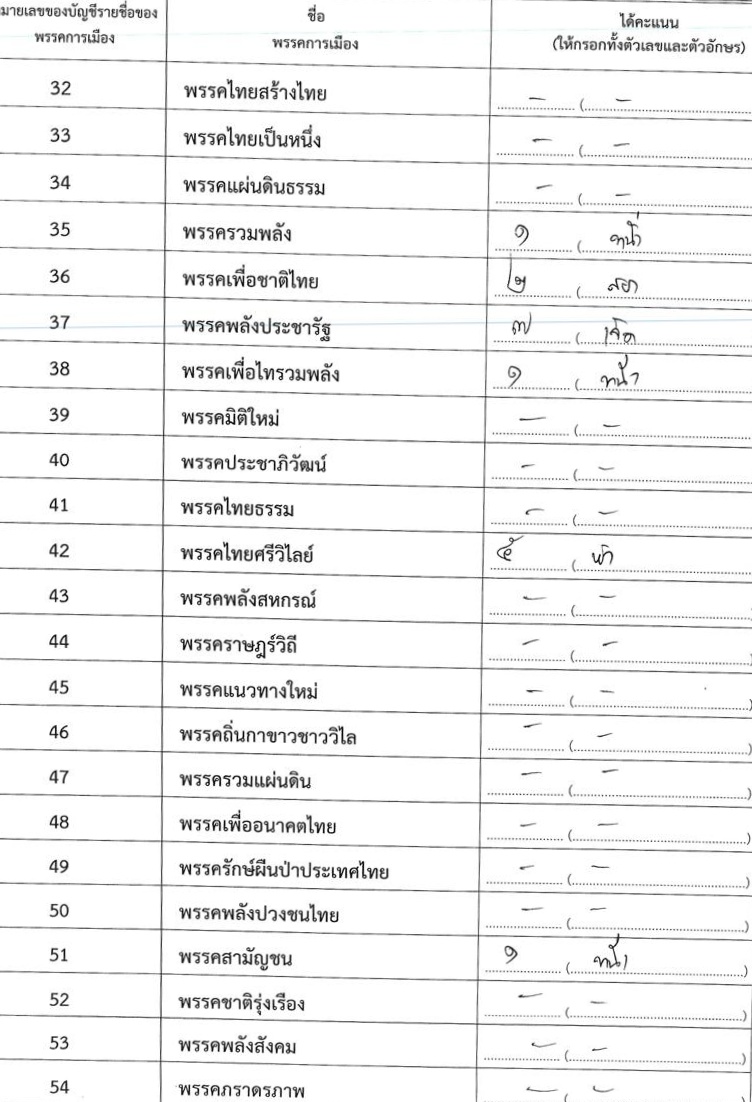 มายเลขของบัญชีรายชื่อของ
พรรคการเมือง
ชื่อ
พรรคการเมือง
ได้คะแนน
(ให้กรอกทั้งตัวเลขและตัวอักษร)
32 พรรคไทยสร้างไทย - (-
33 พรรคไทยเป็นหนึ่ง - (-
34 พรรคแผ่นดินธรรม - (-
35 พรรครวมพลัง ๑ (
36 พรรคเพื่อชาติไทย ๒ (
37 พรรคพลังประชารัฐ ๗ (เจ็ด
38 พรรคเพื่อไทรวมพลัง ๑ (
39 พรรคมิติใหม่ - (-
40 พรรคประชาภิวัฒน์ - (-
41 พรรคไทยธรรม - (-
42 พรรคไทยศรีวิไลย์ ๕ (ห้า
43 พรรคพลังสหกรณ์ - (- )
44 พรรคราษฎร์วิถี - (- )
45 พรรคแนวทางใหม่ - (- )
46 พรรคถิ่นกาขาวชาววิไล - (- )
47 พรรครวมแผ่นดิน - (- )
48 พรรคเพื่ออนาคตไทย - (- )
49 พรรครักษ์ผืนป่าประเทศไทย - (- )
50 พรรคพลังปวงชนไทย - (- )
51 พรรคสามัญชน ๑ ( )
52 พรรคชาติรุ่งเรือง - (- )
53 พรรคพลังสังคม - (- )
54 พรรคภราดรภาพ - (- )